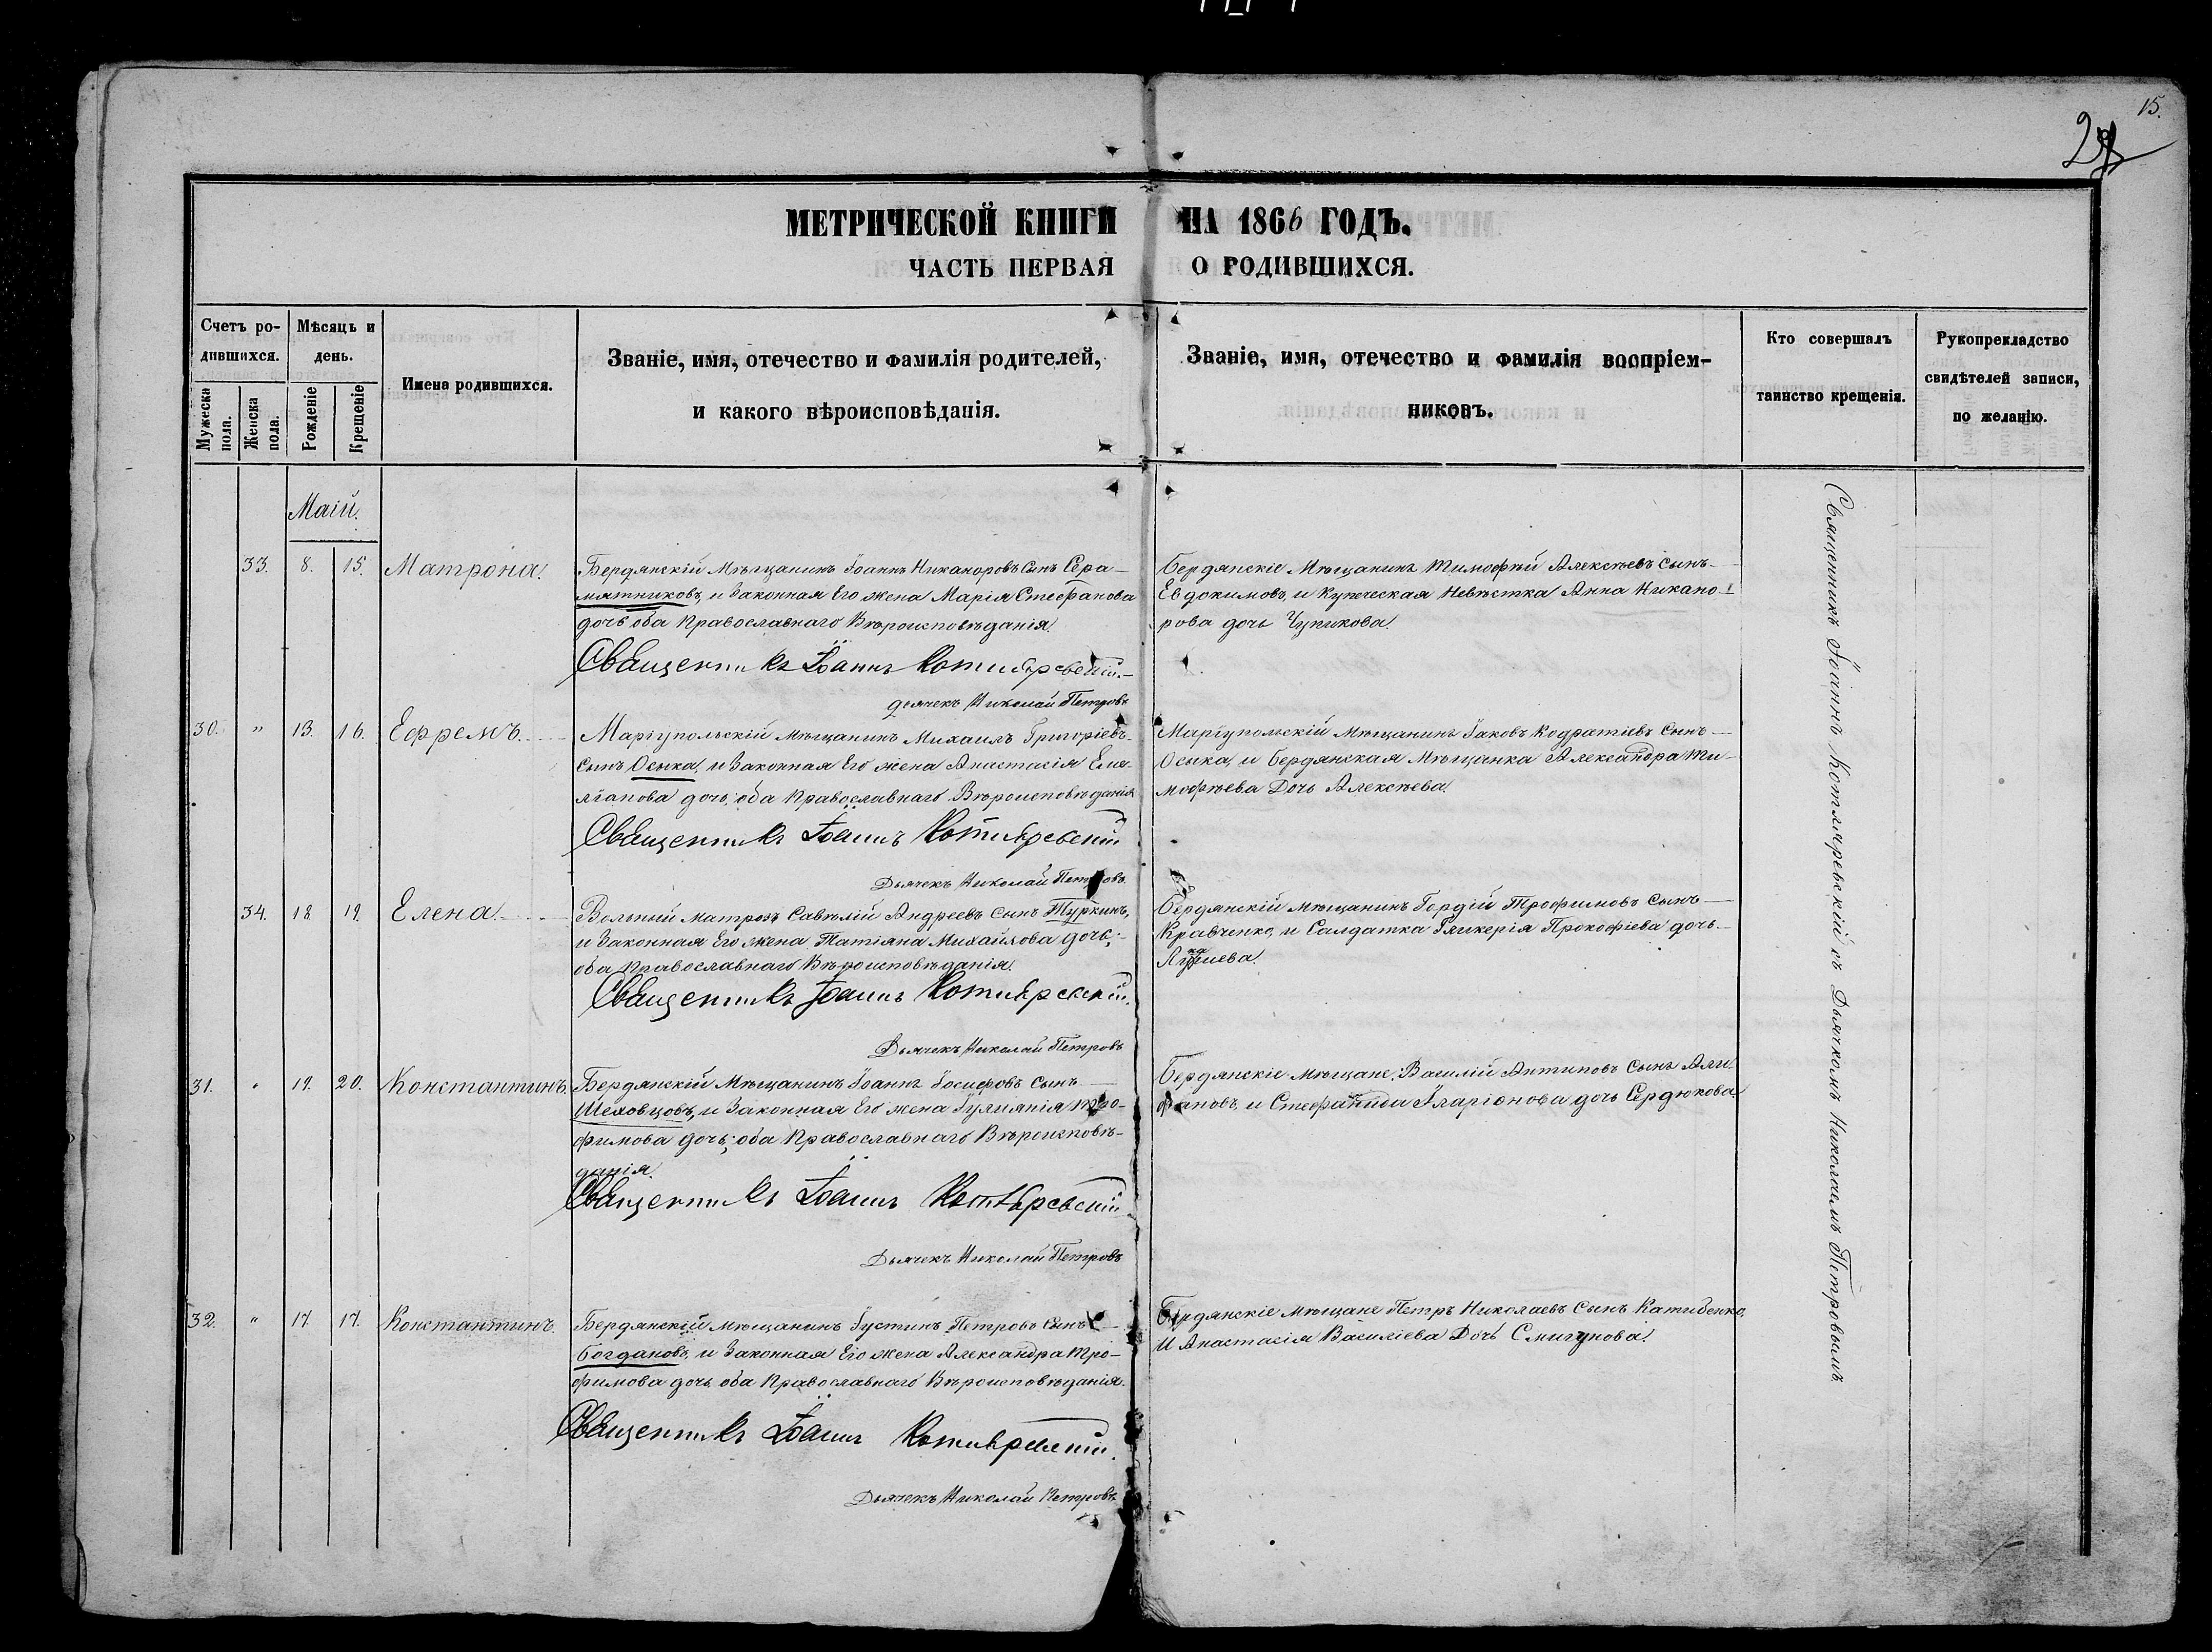 15.
МЕТРИЧЕСКОЙ КНИГИ НА 1866 ГОДЪ.
ЧАСТЬ ПЕРВАЯ О РОДИВШИХСЯ.
Счетъ ро-
дившихся.
Мужеска пола.
Женска пола.
Мѣсяцъ и
день.
Рожденіе
Крещеніе
Имена родившихся.
Званіе, имя, отечество и фамилія родителей,
и какого вѣроисповѣданія.
Званіе, имя, отечество и фамилія воспріем-
никовъ.
Кто совершалъ
таинство крещенія.
Рукоприкладство
свидѣтелей записи,
по желанію.
Маій.
33. 8. 15. Матрона.
Бердянскій Мѣщанинъ Іоаннъ Никаноровъ Сынъ Сера-
мятниковъ, и Законная Его жена Марія Стефанова
дочь оба Православнаго Вѣроисповѣданія.
Священникъ Іоаннъ Котляревскій.
дьячекъ Николай Петровъ
Бердянскіе Мѣщанинъ Тимофѣй Алексѣевъ сынъ
Евдокимовъ, и Купеческая Невѣстка Анна Никано-
рова дочь Чупикова.
30. " 13. 16. Ефремъ.
Маріупольскій Мѣщанинъ Михаилъ Григоріевъ
сынъ Осыка, и Законная Его жена Анастасія Еме-
ліанова дочь, оба Православнаго Вѣроисповѣданія
Священникъ Іоаннъ Котляревскій
Дьячекъ Николай Петровъ.
Маріупольскій Мѣщанинъ Іаковъ Кодратіевъ Сынъ
Осыка, и Бердянская Мѣщанка Александра Ти-
мофѣева Дочь Алексѣева.
34. 18. 19. Елена.
Вольный матрозъ Савелій Андреевъ сынъ Туркинъ,
и Законная Его жена Татіана Михайлова дочь,
оба Православнаго Вѣроисповѣданія.
Священникъ Іоаннъ Котляревскій.
Дьячекъ Николай Петровъ
Бердянскій мѣщанинъ Гордѣй Трофимовъ сынъ
Кравченко, и Салдатка Гликерія Прокофіева дочь
31. " 19. 20. Константинъ.
Бердянскій Мѣщанинъ Іоаннъ Іосифовъ сынъ
Шеховцовъ, и Законная Его жена Іуліанія Тро-
фимова дочь, оба Православнаго Вѣроисповѣ-
данія.
Священникъ Іоаннъ Котляревскій
Дьячекъ Николай Петровъ
Бердянскіе мѣщане: Василій Антиповъ Сынъ Али-
фановъ, и Стефанида Иларіонова дочь Сердюкова
32. " 17. 17. Константинъ.
Бердянскій мѣщанинъ Іустинъ Петровъ Сынъ
Богдановъ, и Законная Его жена Александра Тро-
фимова дочь, оба Православнаго Вѣроисповѣданія.
Священникъ Іоаннъ Котляревскій.
Дьячекъ Николай Петровъ.
Бердянскіе мѣщане Петръ Николаевъ Сынъ Катибенко,
и Анастасія Василіева Дочь Смигунова.
Священникъ Іоаннъ Котляревскій съ Дьячкомъ Николаемъ Петровымъ